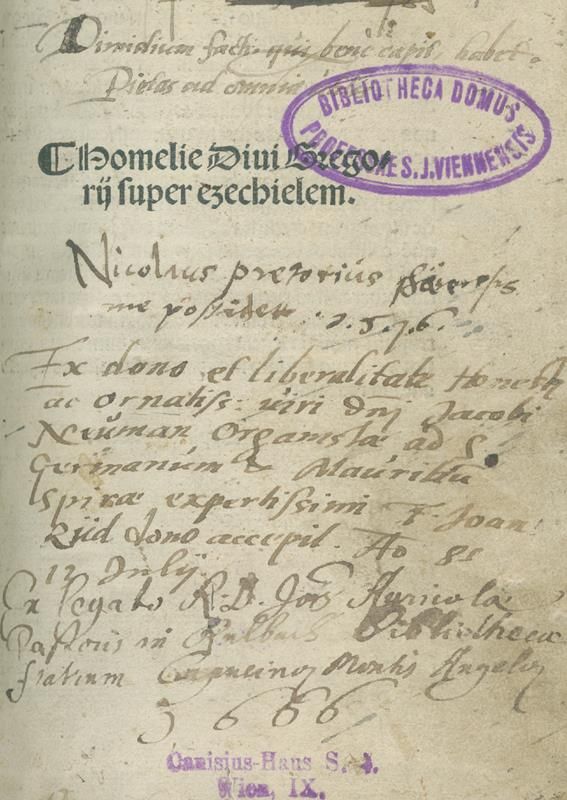 Dimidium facti qui bene capit habet.
Pietas ad omnia
BIBLIOTHECA DOMUS
PROFESSAE S.J. VIENNENSIS
Omelie Diui Grego⸗
rij super ezechielem.
Nicolaus pretorius
me possidet .1.5.7.6.
Ex dono et liberalitate Honesti
ac ornatiss: uiri dnj Jacobi
Neuman Organistæ ad S.
Germanum & Mauritiũ
Spiræ expertissimi F. Joan
dono accepit. Ao 81
12 Julij.
Ex legato R. D. Joĩs Agricola
Pastoris in Bibliotheca
fratrum Capucinoȝ Montis Angeloȝ
1666
Canisius-Haus S. J.
Wien, IX.